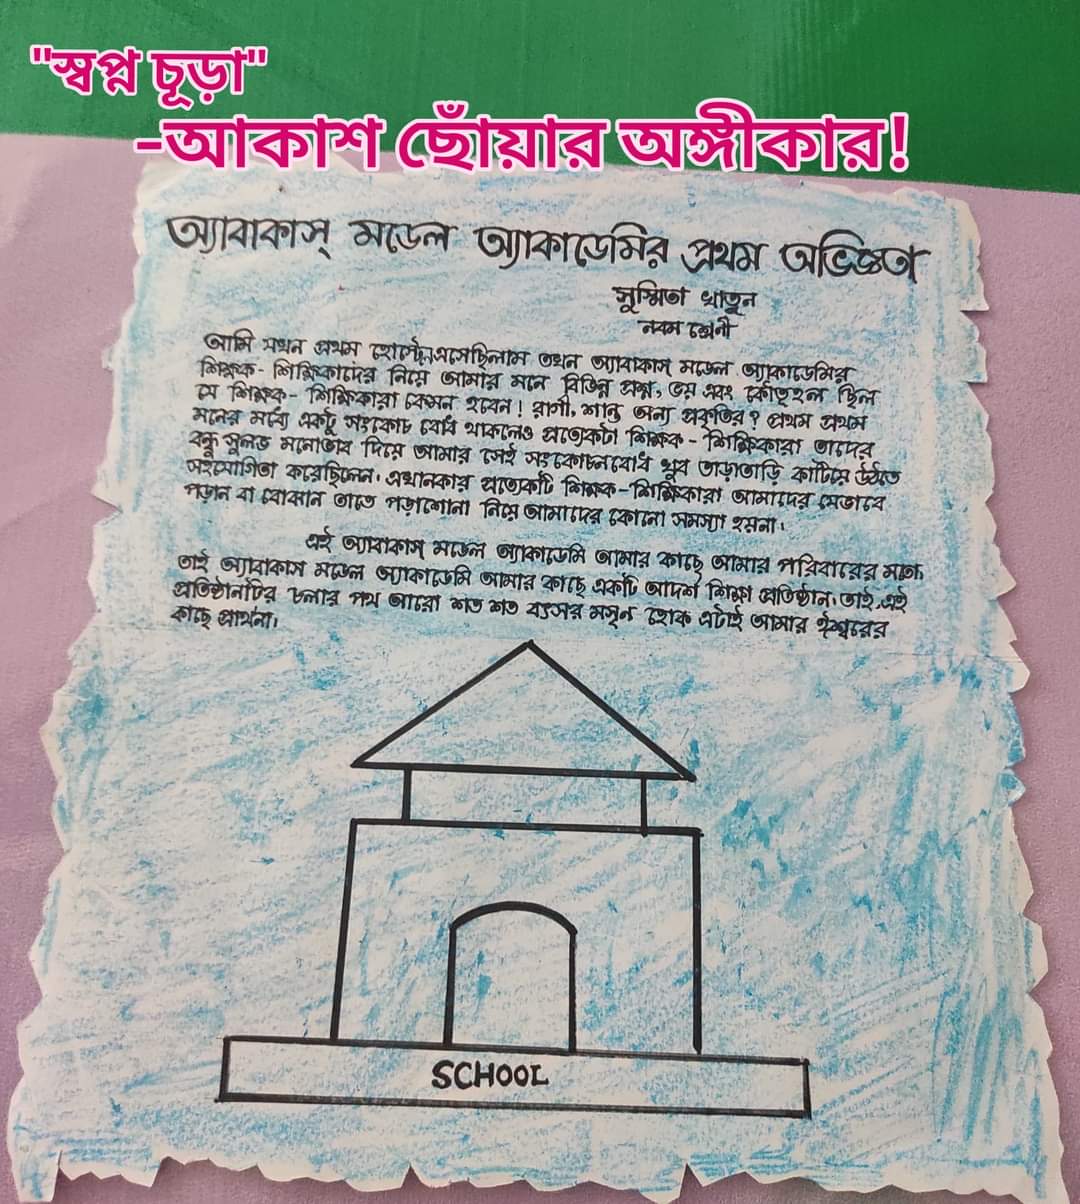 "স্বপ্ন চূড়া"
-আকাশ ছোঁয়ার অঙ্গীকার!
অ্যাবাকাস্ মডেল অ্যাকাডেমির প্রথম অভিজ্ঞতা
সুস্মিতা খাতুন
নবম শ্রেনী
আমি যখন প্রথম হোস্টেলে এসেছিলাম তখন অ্যাবাকাস্ মডেল অ্যাকাডেমির
শিক্ষক - শিক্ষিকাদের নিয়ে আমার মনে বিভিন্ন প্রশ্ন, ভয় এবং কৌতূহল ছিল
যে শিক্ষক - শিক্ষিকারা কেমন হবেন! রাগী, শান্ত অন্য প্রকৃতির? প্রথম প্রথম
মনের মধ্যে একটু সংকোচ বোধ থাকলেও প্রত্যেকটা শিক্ষক - শিক্ষিকারা তাদের
বন্ধু সুলভ মনোভাব দিয়ে আমার সেই সংকোচনবোধ খুব তাড়াতাড়ি কাটিয়ে উঠতে
সহযোগিতা করেছিলেন। এখানকার প্রত্যেকটি শিক্ষক - শিক্ষিকারা আমাদের যেভাবে
পড়ান বা বোঝান তাতে পড়াশোনা নিয়ে আমাদের কোনো সমস্যা হয়না।
এই অ্যাবাকাস্ মডেল অ্যাকাডেমি আমার কাছে আমার পরিবারের মতো
তাই অ্যাবাকাস মডেল অ্যাকাডেমি আমার কাছে একটি আদর্শ শিক্ষা প্রতিষ্ঠান। তাই, এই
প্রতিষ্ঠানটির চলার পথ আরো শত শত বৎসর মসৃন হোক এটাই আমার ঈশ্বরের
কাছে প্রার্থনা।
SCHOOL